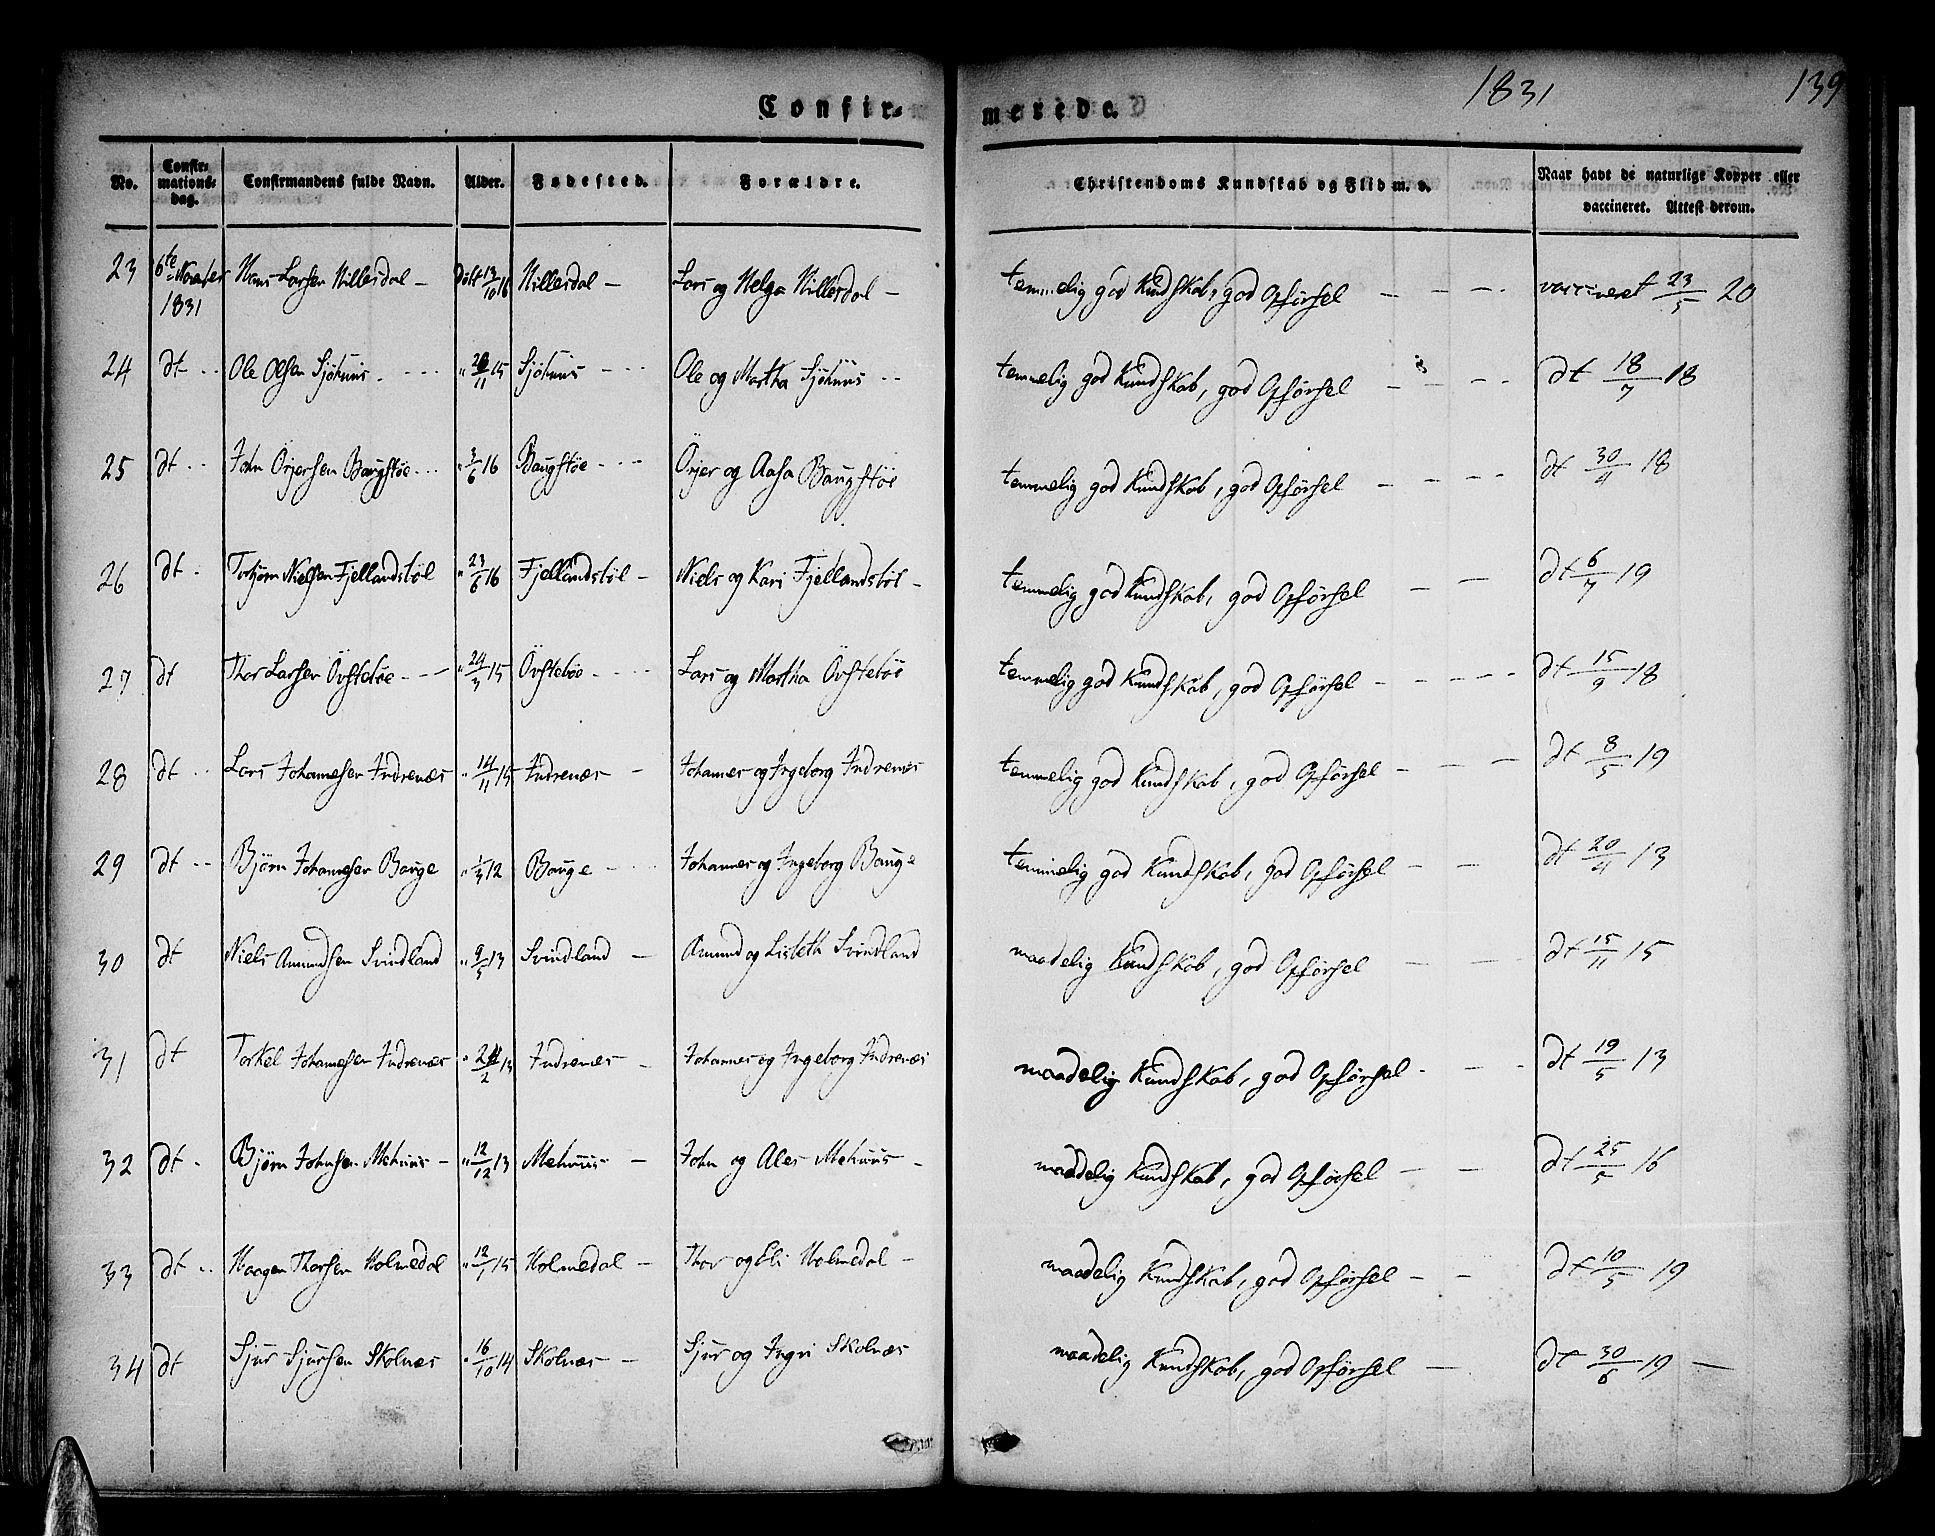 Confir-
merede.
1831
139
No. Confir-mations-dag. Confirmandens fulde Navn. Alder. Fødested. Forældre. Christendoms Kundskab og Flid m. v. Naar havt de naturlige Kopper eller vaccineret. Attest derom.
23 6te November 1831 Hans Larsen Hillesdal – Døbt 13/10 16 Hillesdal – Lars og Helga Hillesdal – temmelig god Kundskab, god Opførsel – – – vaccineret 23/5 20
24 dt Ole Olsen Sjøhuus " /11 15 Sjøhuus Ole og Martha Sjøhuus temmelig god Kundskab, god Opførsel – – – dt 18/7 18
25 dt John Örjersen Baugstøe " 3/6 16 Baugstøe Örjer og Aasa Baugstøe temmelig god Kundskab, god Opførsel – – – dt 30/11 18
26 dt Torbjørn Nielsen Fjellandstøl " 23/6 16 Fjellandstøl – Niels og Kari Fjellandstøl – temmelig god Kundskab, god Opførsel – – dt 6/7 19
27 dt Thor Larsen Övstebøe " 24/3 15 Övstebøe Lars og Martha Övstebøe temmelig god Kundskab, god Opførsel – – – – dt 15/9 18
28 dt Lars Johannesen Indrenæs " 14/11 15 Indrenæs – Johannes og Ingeborg Indrenæs temmelig god Kundskab, god Opførsel – – – dt 8/5 19
29 dt Bjørn Johannesen Bauge " 1/3 12 Bauge – Johannes og Ingeborg Bauge temmelig god Kundskab, god Opførsel – – dt 20/11 13
30 dt Niels Amundsen Svindland " 9/5 13 Svindland – Amund og Lisbeth Svindland maadelig Kundskab, god Opførsel – – dt 15/11 15
31 dt Torkel Johannesen Indrenæs " /2 13 Indrenæs – Johannes og Ingeborg Indrenæs maadelig Kundskab, god Opførsel – – – dt 19/5 13
32 dt Bjørn Johnsen Mehuus – " 12/12 13 Mehuus – John og Ales Mehuus – maadelig Kundskab, god Opførsel – – dt 25/5 16
33 dt Haagen Thorsen Holmedal " 12/1 15 Holmedal – Thor og Eli Holmedal – maadelig Kundskab, god Opførsel – – dt 10/5 19
34 dt Sjur Sjursen Skolnæs " 16/10 14 Skolnæs – Sjur og Ingri Skolnæs maadelig Kundskab, god Opførsel – dt 30/6 19 –